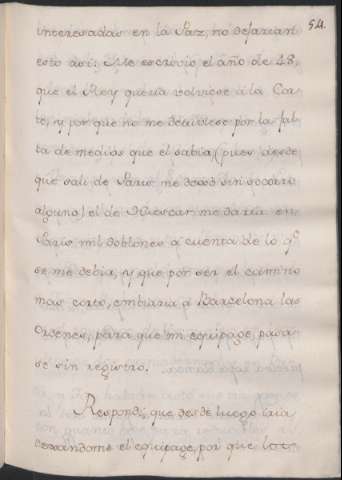 54.
interesadas en la Paz, no dejarian
esto asi. Me escrivio el año de 48,
que el Rey queria volviese à la Cor-
te, y por que no me detuviese por la fal-
ta de medios que el sabia, (pues desde
que sali de Paris me dexó sin socorro
alguno) el de Huescar me daria en
Paris mil doblones a cuenta de lo qᵉ
se me debia, y que por ser el camino
mas corto, embiaria à Barcelona las
ordenes, para que mi equipage, pasa-
se sin registro.
Respondi, que desde luego iria
dexandome el equipage, por que los